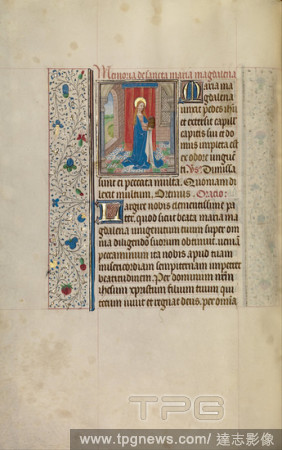 Memoria de sancta maria magdalena
Maria ma
gdalena
unxit pedes ihu
et extersit capill
capitis sui et do
mus impleta est
ex odore ungue
ti. Vs. Dimissa
sunt ei peccata multa. Quoniam di
lexit multum. Oremus. Oracio:
Largire nobis clementissime pa
ter. quod sicut beata maria ma
gdalena unigenitum tuum super om
nia diligendo suorum obtinuit. veniam
peccaminum ita nobis apud tuam
misericordiam sempiternam impetret
beatitudinem. Per dominum nrm
ihesum xpristum filium tuum qui
tecum vivit et regnat deus. per omia
TPG
www.tpgnews.com/達志影像